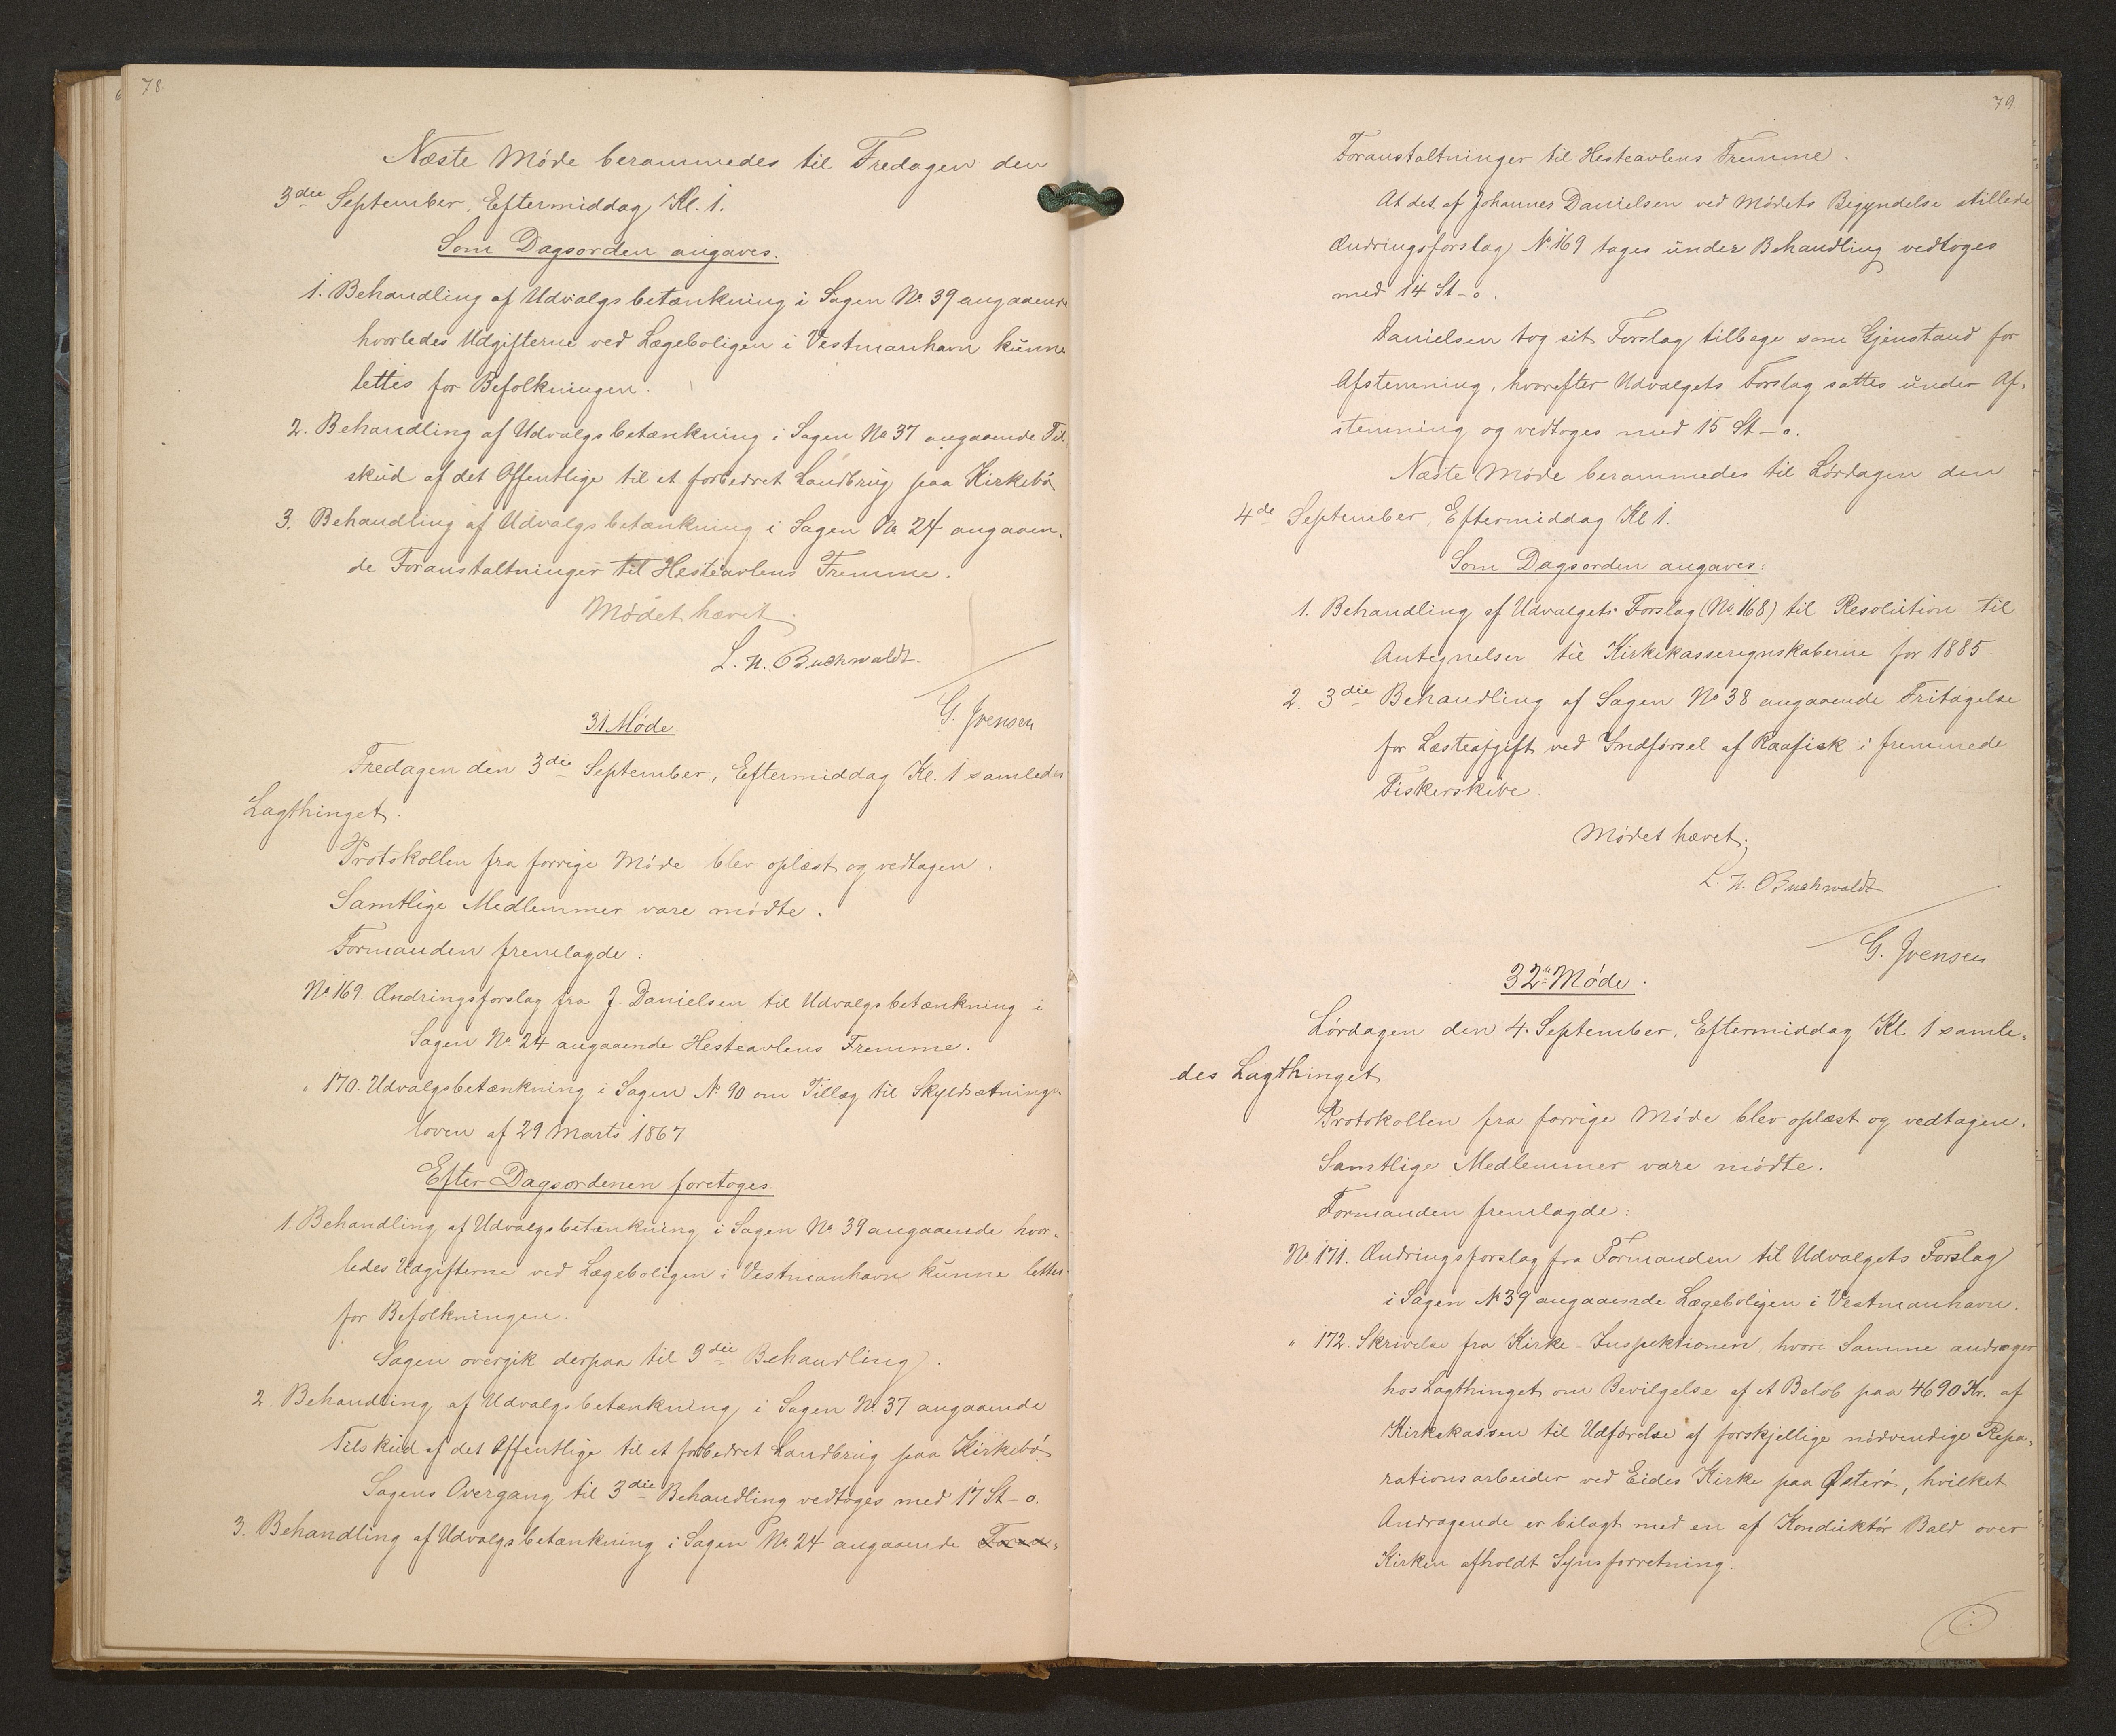 78.
Næste Møde berammedes til Fredagen den
3die September, Eftermiddag Kl. 1.
Som Dagsorden angaves.
1. Behandling af Udvalgsbetænkning i Sagen No 39 angaaende
hvorledes Udgifterne ved Lægeboligen i Vestmanhavn kunne
lettes for Befolkningen.
2. Behandling af Udvalgsbetænkning i Sagen No 37 angaaende Til
skud af det Offentlige til et forbedret Landbrug paa Kirkebø
3. Behandling af Udvalgsbetænkning i Sagen No 24 angaaen-
de Foranstaltninger til Hesteavlens Fremme.
Mødet hævet
L. N. Buchwaldt.
G. Ivensen
31 Møde.
Fredagen den 3die September, Eftermiddag Kl. 1 samledes
Lagthinget.
Protokollen fra forrige Møde blev oplæst og vedtagen.
Samtlige Medlemmer vare mødte.
Formanden fremlagde:
No 169. Ændringsforslag fra J. Danielsen til Udvalgsbetænkning i
Sagen No 24 angaaende Hesteavlens Fremme.
" 170. Udvalgsbetænkning i Sagen No 90 om Tillæg til Skyldsætnings-
loven af 29 Marts 1867
Efter Dagsordenen foretoges.
1. Behandling af Udvalgsbetænkning i Sagen No 39 angaaende hvor-
ledes Udgifterne ved Lægeboligen i Vestmanhavn kunne lettes
for Befolkningen.
Sagen overgik derpaa til 3die Behandling.
2. Behandling af Udvalgsbetænkning i Sagen No 37 angaaende
Tilskud af det Offentlige til et forbedret Landbrug paa Kirkebø.
Sagens Overgang til 3die Behandling vedtoges med 17 St - o.
3. Behandling af Udvalgsbetænkning i Sagen No 24 angaaende
79.
Foranstaltninger til Hesteavlens Fremme.
At det af Johannes Danielsen ved Mødets Begyndelse stillede
Ændringsforslag No 169 tages under Behandling vedtoges
med 14 St - o.
Danielsen tog sit Forslag tilbage som Gjenstand for
Afstemning, hvorefter Udvalgets Forslag sattes under Af-
stemning og vedtoges med 15 St - o.
Næste Møde berammedes til Lørdagen den
4de September, Eftermiddag Kl 1.
Som Dagsorden angaves:
1. Behandling af Udvalgets Forslag (No 168) til Resolution til
Antegnelser til Kirkekasseregnskaberne for 1885.
2. 3die Behandling af Sagen No 38 angaaende Fritagelse
for Læsteafgift ved Indførsel af Raafisk i fremmede
Fiskerskibe.
Mødet hævet.
L. N. Buchwaldt
G. Ivensen
32te Møde.
Lørdagen den 4. September, Eftermiddag Kl 1 samle-
des Lagthinget
Protokollen fra forrige Møde blev oplæst og vedtagen.
Samtlige Medlemmer vare mødte.
Formanden fremlagde:
No 171. Ændringsforslag fra Formanden til Udvalgets Forslag
i Sagen No 39 angaaende Lægeboligen i Vestmanhavn.
" 172. Skrivelse fra Kirke-Inspektionen, hvori Samme andrager
hos Lagthinget om Bevilgelse af et Beløb paa 4690 Kr. af
Kirkekassen til Udførelse af forskjellige nødvendige Repa-
rationsarbeider ved Eides Kirke paa Østerø, hvilket
Andragende er bilagt med en af Konduktør Bald over
Kirken afholdt Synsforretning.